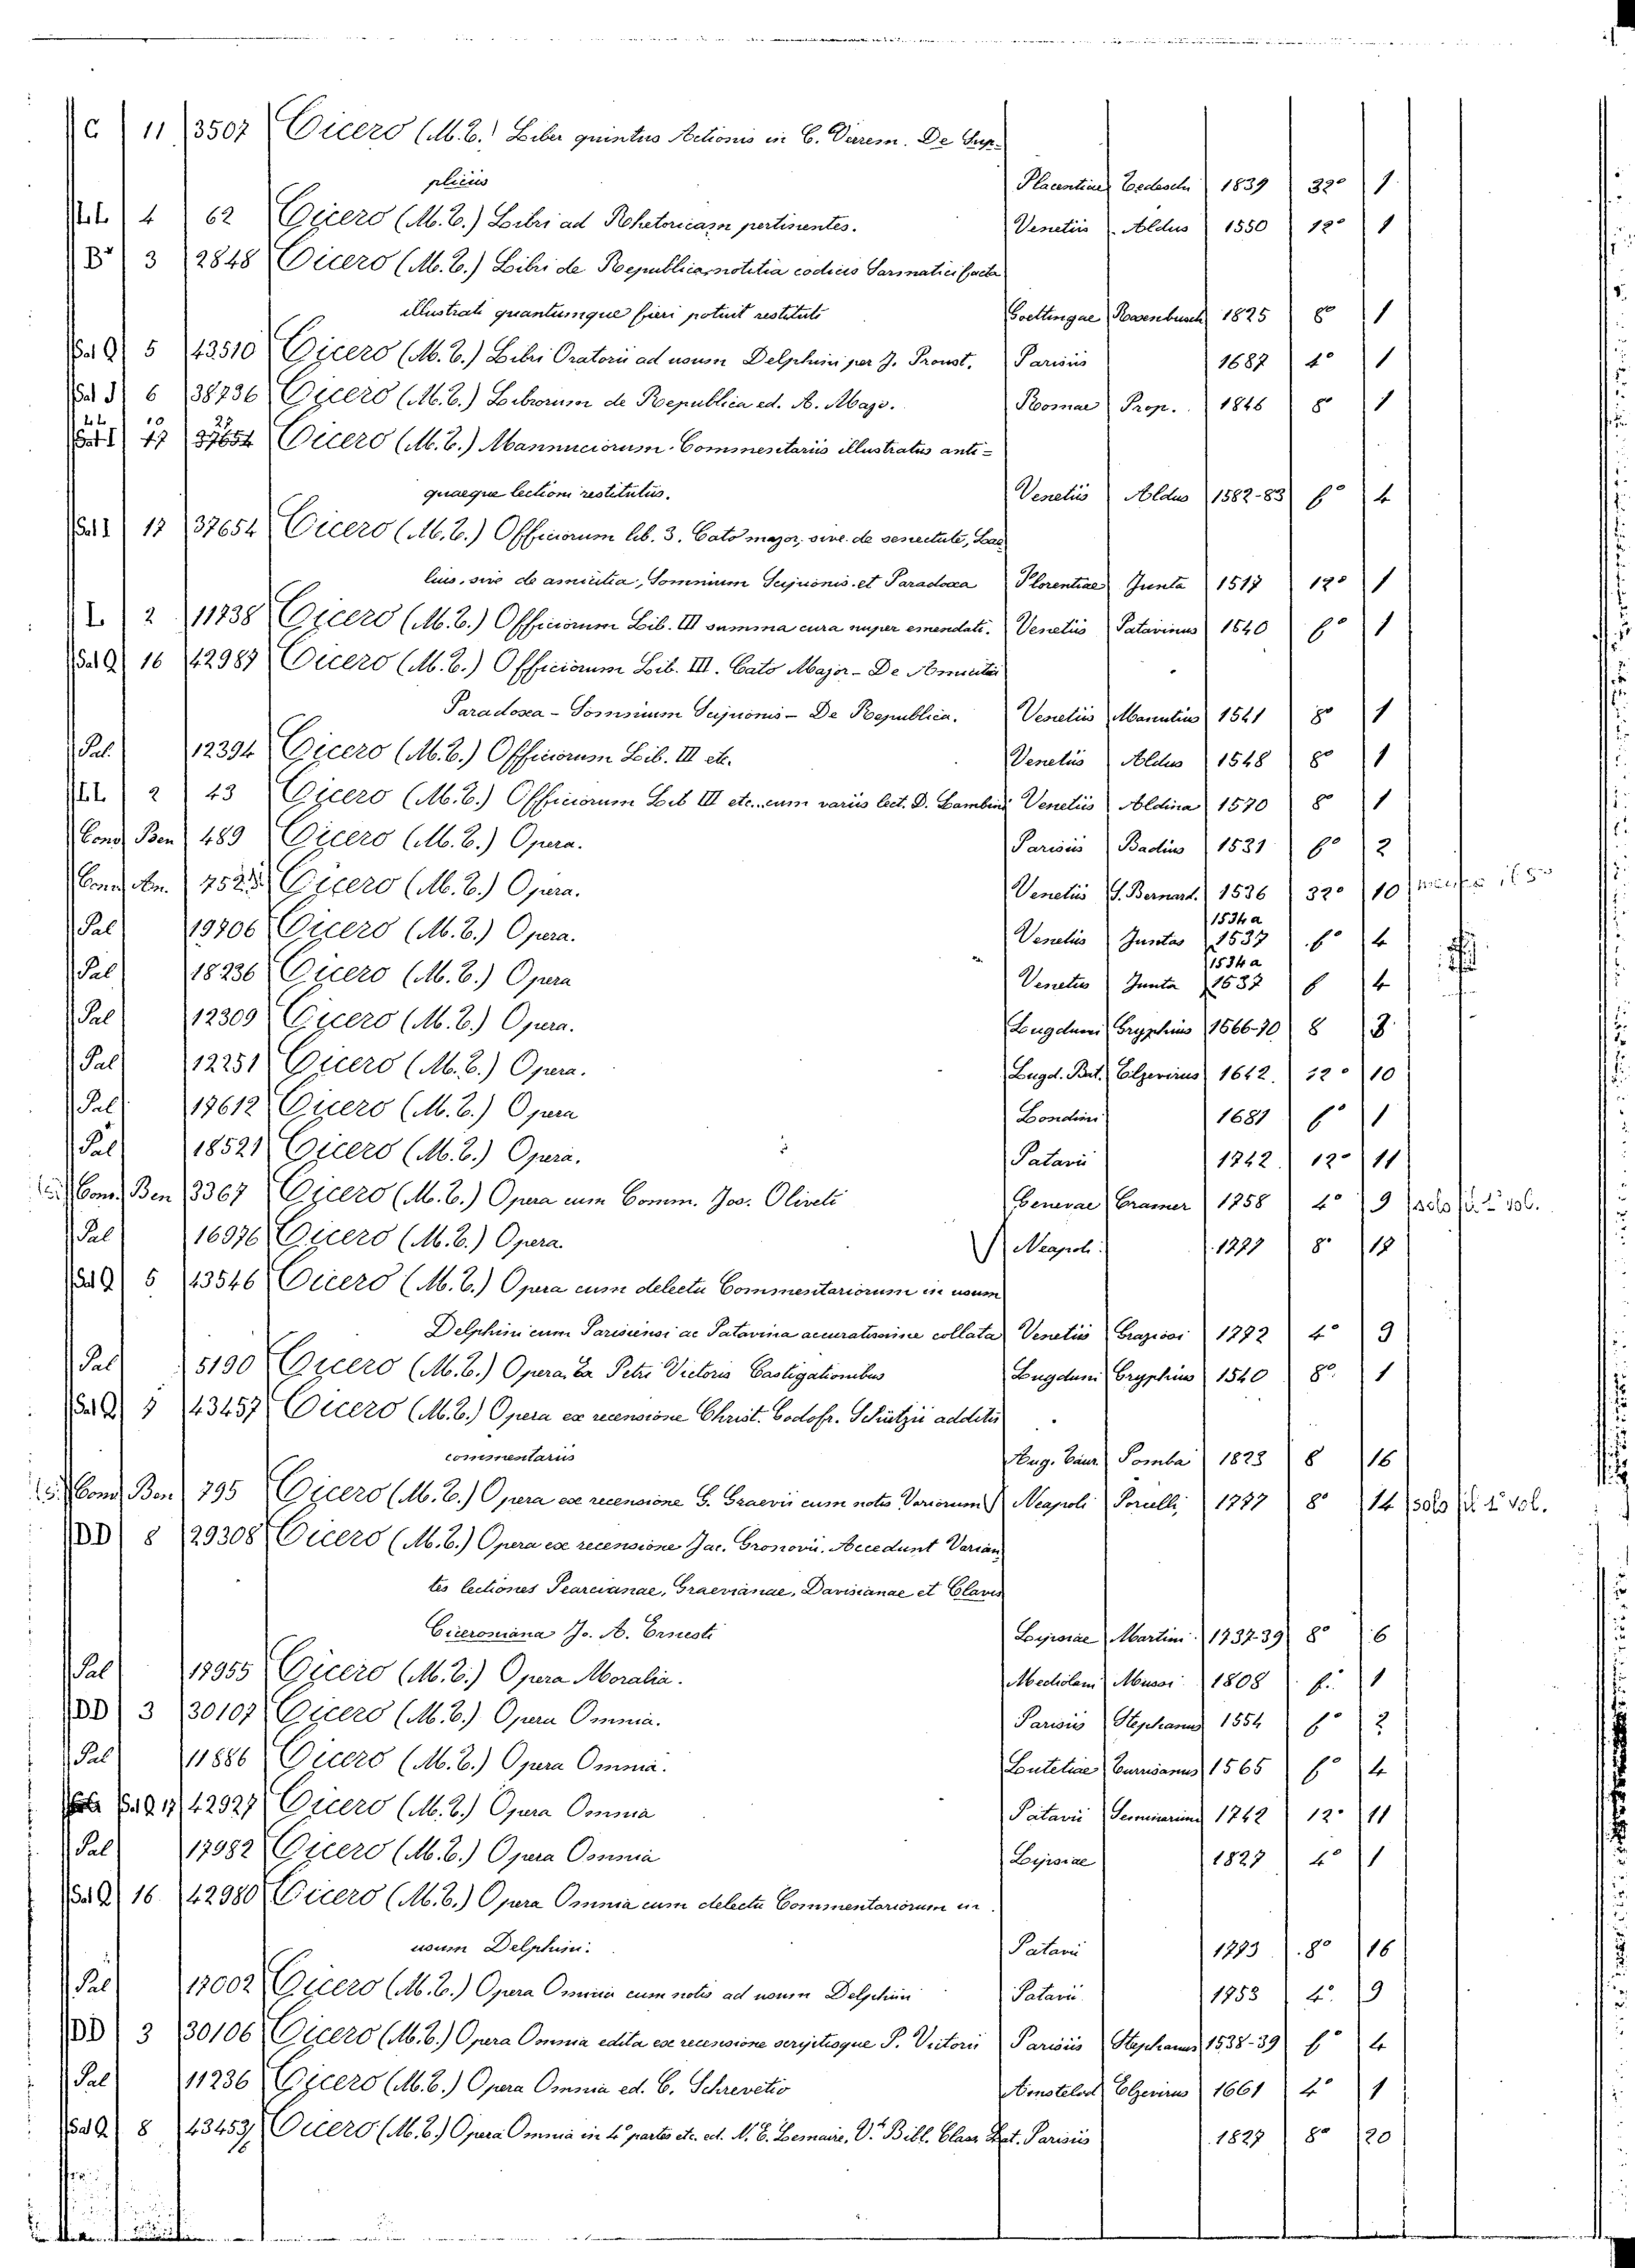 C 11 3507 Cicero (M. C.) Liber quintus Actionis in C. Verrem. De Sup-
pliciis Placentiae Tedeschi 1839 32° 1
4 62 Cicero (M. C.) Libri ad Rhetoricam pertinentes. Venetiis Aldus 1550 12° 1
3 2848 Cicero (M. C.) Libri de Republica notitia codicis Sarmatici facta
illustrati quantumque fieri potuit restituti Goettingae Rosenbusch 1825 8° 1
Sal Q 5 43510 Cicero (M. C.) Libri Oratorii ad usum Delphini per J. Proust. Parisiis 1687 4° 1
6 38736 Cicero (M. C.) Librorum de Republica ed. A. Majo. Romae Prop. 1846 8° 1
17 37654 Cicero (M. C.) Mannuciorum Commentariis illustratus anti-
quaeque lectioni restitutus. Venetiis Aldus 1582-83 f° 4
Sal I 17 37654 Cicero (M. C.) Officiorum lib. 3. Cato major, sive de senectute, Lae
lius, sive de amicitia, Somnium Scipionis et Paradoxa Florentiae Junta 1517 12° 1
L 2 11738 Cicero (M. C.) Officiorum Lib. III summa cura nuper emendati. Venetiis Patavinus 1540 f° 1
Sal Q 16 42987 Cicero (M. C.) Officiorum Lib. III. Cato Major - De Amicitia
Paradoxa - Somnium Scipionis - De Republica. Venetiis Manutius 1541 8° 1
Pal. 12394 Cicero (M. C.) Officiorum Lib. III etc. Venetiis Aldus 1548 8° 1
2 43 Cicero (M. C.) Officiorum Lib III etc. cum variis lect. D. Lambini Venetiis Aldina 1570 8° 1
Cons Ben 489 Cicero (M. C.) Opera. Parisiis Badius 1531 f° 2
Cons An. Cicero (M. C.) Opera. Venetiis G. Bernard. 1536 32° 10
1534 a
Pal 19706 Cicero (M. C.) Opera. Venetiis Juntas 1537 f° 4
1534 a
Pal 18236 Cicero (M. C.) Opera Venetiis Junta 1537 f 4
Pal 12309 Cicero (M. C.) Opera. Lugduni Gryphius 1566-70 8
Pal 12251 Cicero (M. C.) Opera. Lugd. Bat. Elzevirius 1642. 12° 10
Pal 17612 Cicero (M. C.) Opera Londini 1681 f° 1
Pal 18521 Cicero (M. C.) Opera. Patavii 1742 12° 11
Cons. Ben 3367 Cicero (M. C.) Opera cum Comm. Jos. Oliveti Genevae Cramer 1758 4° 9 solo il 2° vol.
Pal 16976 Cicero (M. C.) Opera. Neapoli 1777 8°
Sal Q 5 43546 Cicero (M. C.) Opera cum delectu Commentariorum in usum
Delphini cum Parisiensi ac Patavina accuratissime collata Venetiis Graziosi 1772 4° 9
Pal 5190 Cicero (M. C.) Opera, Ex Petri Victoris Castigationibus Lugduni Gryphius 1540 8° 1
Sal Q 43457 Cicero (M. C.) Opera ex recensione Christ. Godofr. Schützii additis
commentariis Aug. Taur. Pomba 1823 8 16
Cons Ben 795 Cicero (M. C.) Opera ex recensione G. Graevii cum notis Variorum Neapoli Porcelli, 1777 8° 14 solo il 1° vol.
DD 8 29308 Cicero (M. C.) Opera ex recensione Jac. Gronovii. Accedunt Varian
tes lectiones Pearcianae, Graevianae, Davisianae et Clavis
Ciceroniana Jo. A. Ernesti Lipsiae Martini 1737-39 8° 6
Pal 17955 Cicero (M. C.) Opera Moralia. Mediolani Mussi 1808 f. 1
DD 3 30107 Cicero (M. C.) Opera Omnia. Parisiis Stephanus 1554 f° 2
Pal 11886 Cicero (M. C.) Opera Omnia. Lutetiae Turrisanus 1565 f° 4
Sal Q 17 42927 Cicero (M. C.) Opera Omnia Patavii Seminarium 1742 12° 11
Pal 17982 Cicero (M. C.) Opera Omnia Lipsiae 1827 4° 1
Sal Q 16 42980 Cicero (M. C.) Opera Omnia cum delectu Commentariorum in
usum Delphini. Patavii 1773 8° 16
Pal 17002 Cicero (M. C.) Opera Omnia cum notis ad usum Delphini Patavii 1753 4° 9
DD 3 30106 Cicero (M. C.) Opera Omnia edita ex recensione scriptisque P. Victorii Parisiis Stephanus 1538-39 f° 4
Pal 11236 Cicero (M. C.) Opera Omnia ed. C. Schrevetio Amstelod Elzevirus 1661 4° 1
Sal Q 8 43453 Cicero (M. C.) Opera Omnia in 4 partes etc. ed. N. E. Lemaire, V. Bibl. Class Lat. Parisiis 1827 8° 20